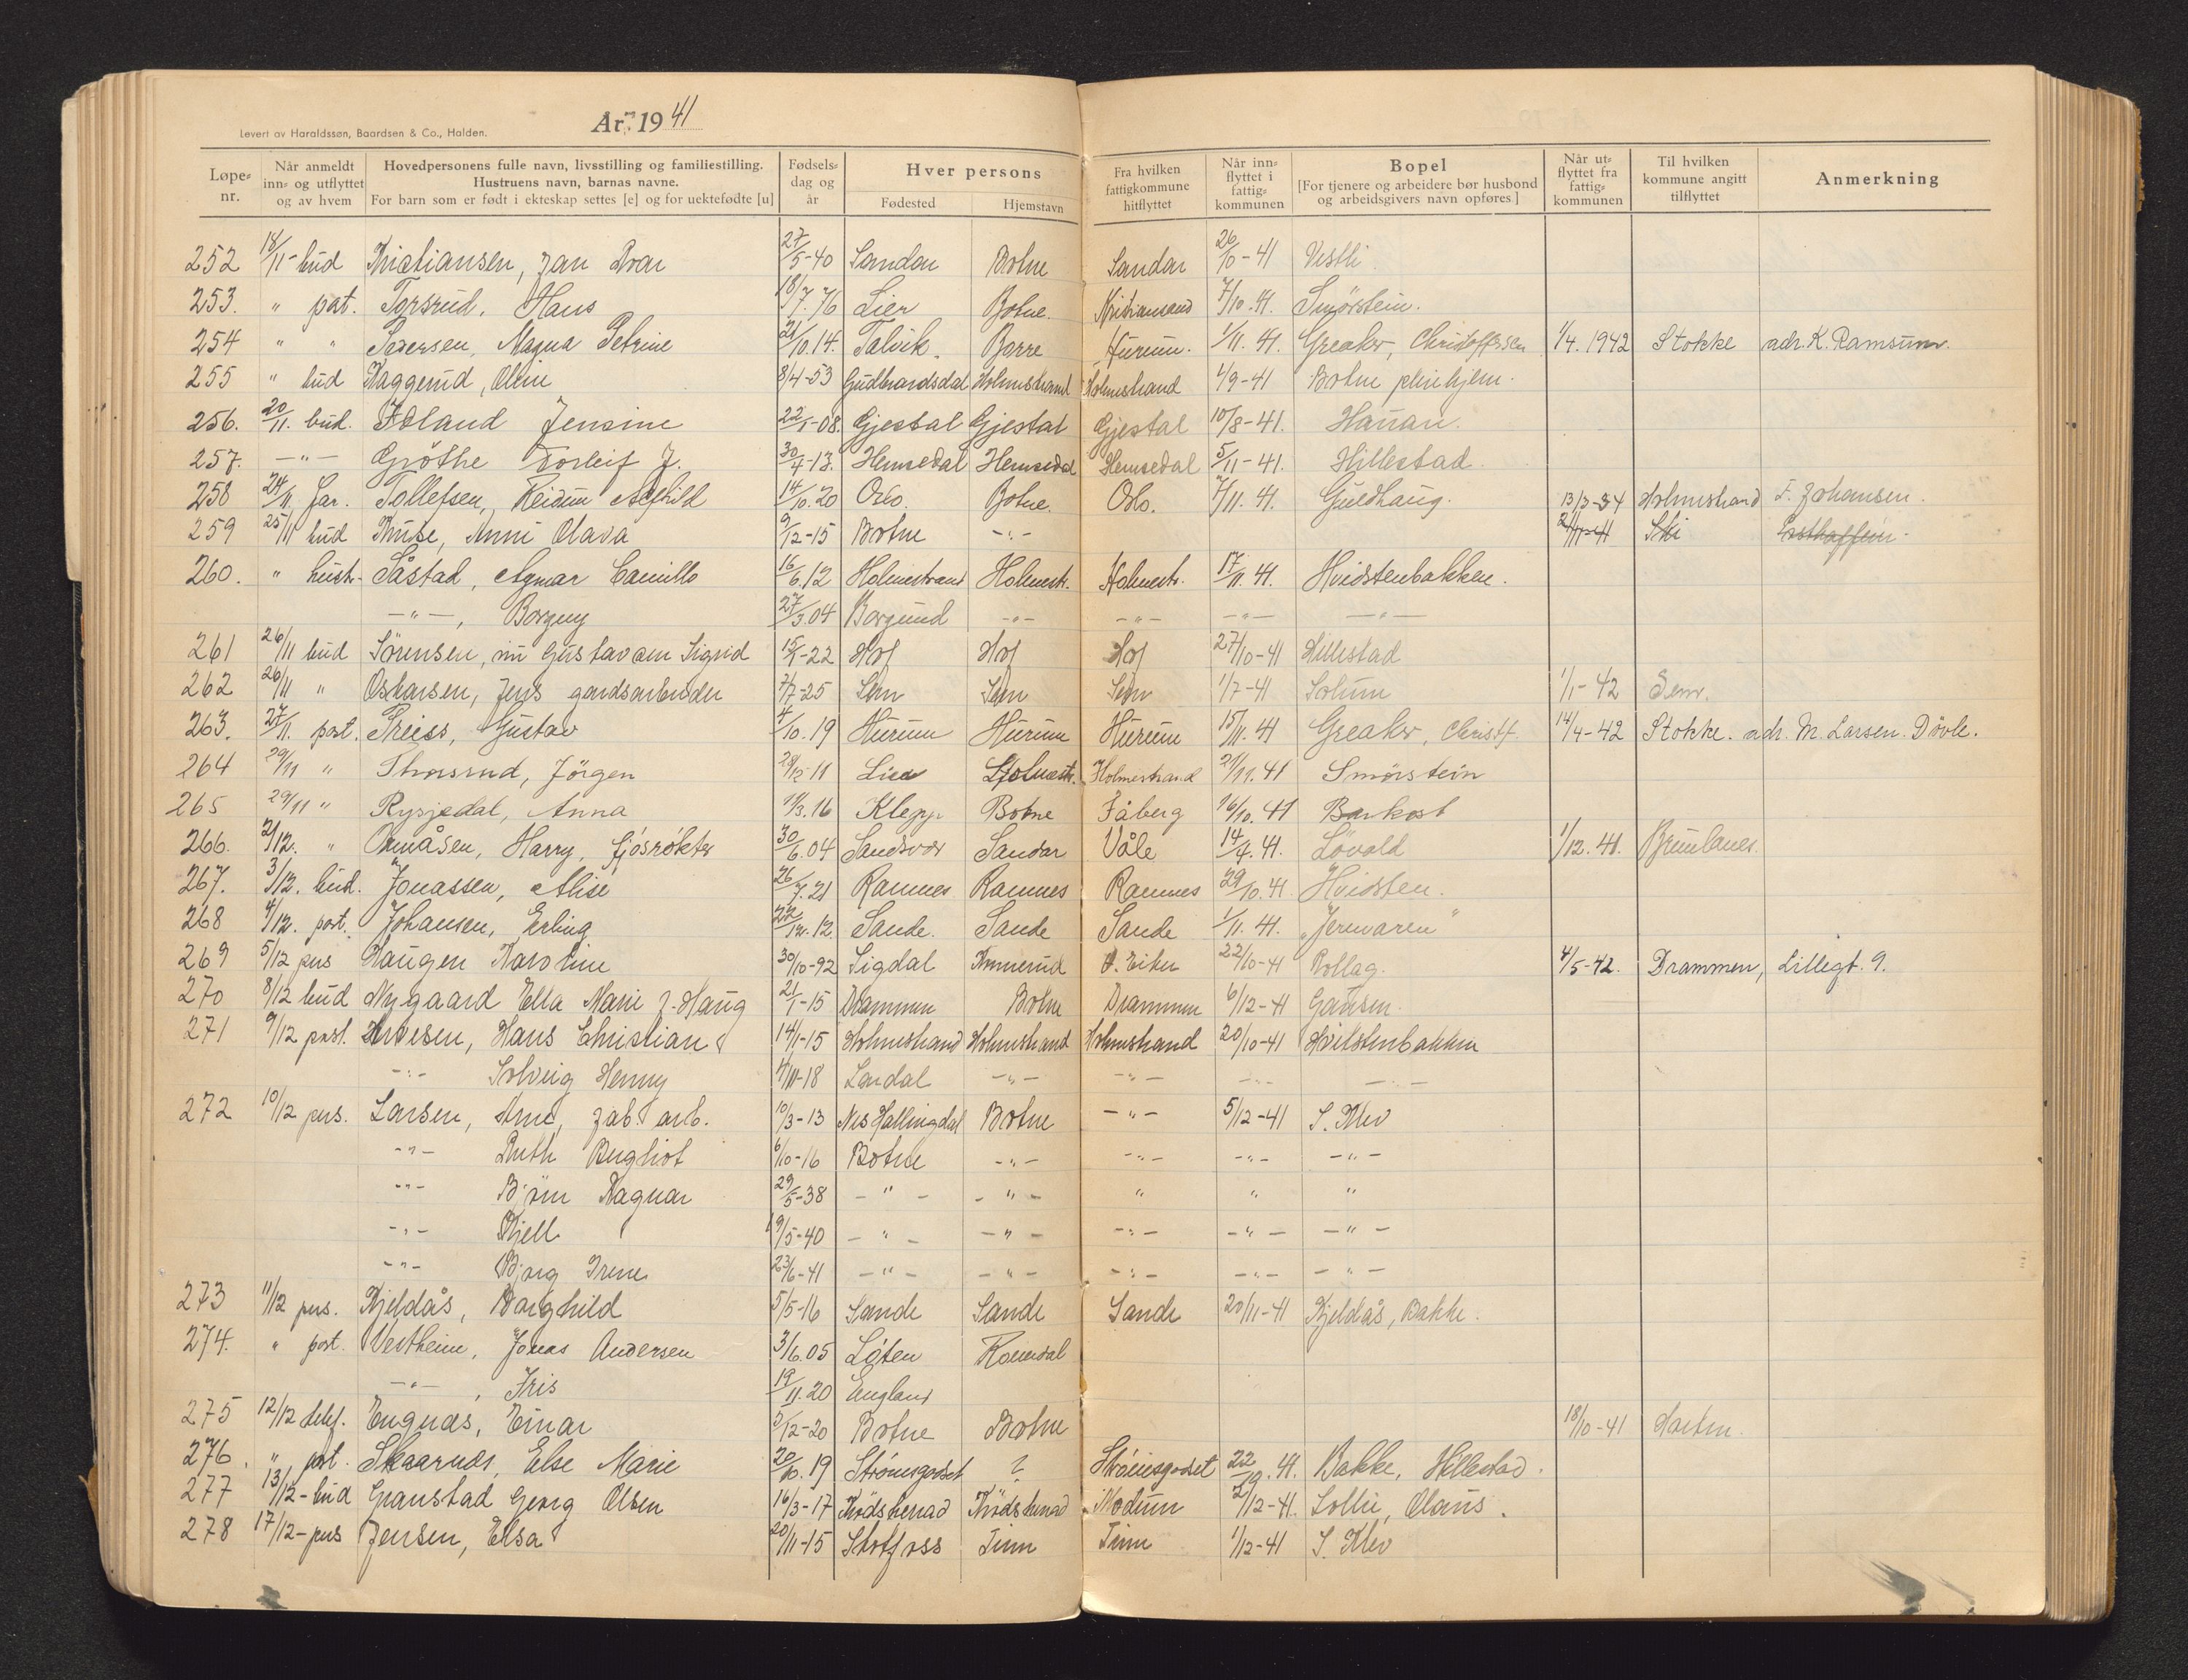 Levert av Haraldssøn, Baardsen & Co., Halden.
År 1941
Løpe-nr. | Når anmeldt inn- og utflyttet og av hvem | Hovedpersonens fulle navn, livsstilling og familiestilling. Hustruens navn, barnas navne. For barn som er født i ekteskap settes [e] og for uektefødte [u] | Fødsels-dag og år | Hver persons Fødested | Hjemstavn | Fra hvilken fattigkommune hitflyttet | Når inn-flyttet i fattig-kommunen | Bopel [For tjenere og arbeidere bør husbond og arbeidsgivers navn opføres] | Når ut-flyttet fra fattig-kommunen | Til hvilken kommune angitt tilflyttet | Anmerkning
252 18/11- bud Kristiansen, Jan Ivar 27/5-40 Sandar Botne Sandar 26/10-41 Vestli
253. " pst. Torsrud, Hans 18/7.76 Lier Botne. Kristiansand 7/10.41. Smørstein.
254 " " Pedersen, Magna Petrine 21/10.14. Talvik. Borre Hurum. 1/11.41. Greaker, Christoffersen 1/4.1942 Stokke adr. K. Ramsum.
255 " bud Haggerud, Oline 8/4-53 Gudbrandsdal Holmestrand Holmestrand 1/9-41 Botne pleiehjem.
256. 20/11. bud. Joland Jensine 22/1-08. Gjestal Gjestal Gjestal 10/8-41. Hanan.
257. -"- Grøthe Torleif J. 30/4-13. Hemsedal Hemsedal Hemsedal 5/11-41. Hillestad.
258 24/11 far. Tollefsen, Reidun Alfhild 14/10.20 Oslo. Botne. Oslo. 7/11.41. Guldhaug. 13/3-34 Holmestrand F. Johansen.
259 25/11 bud Kruse, Anni Olava 9/12-15 Botne -"- 24/11-41 Ski
260. " hustr. Såstad, Agnar Camillo 16/6.12 Holmestrand Holmestr. Holmestr. 17/11.41. Hvidstenbakken.
-"-, Borgny 27/3.04 Borgund -"- -"- -"- -"-
261 26/11 bud Sørensen, nu Gustavsen Sigrid 15/1-22 Hof Hof Hof 27/10-41 Hillestad
262 26/11 " Oskarsen, Jens gardsarbeider 7/7-25 Sem Sem Sem 1/7-41 Solum 1/1-42 Sem.
263. 27/11. post. Preiss, Gustav 4/10.19 Hurum Hurum Hurum 15/11.41 Greaker, Christf. 14/4-42 Stokke. adr. M. Larsen. Døvle.
264 29/11 " Thorsrud, Jörgen 28/12-11 Lier Holmestr. Holmestrand 21/11.41 Smørstein
265 29/11 " Rysjedal, Anna 11/3.16 Klepp Botne Fåberg 16/10.41 Barkost
266. 2/12. " Ormåsen, Harry, fjøsrøkter 30/6.04 Sandsvær Sandar Våle 14/4.41. Løvald 1/12.41. Brunlanes.
267. 3/12. bud. Jonassen, Alise 26/7.21 Ramnes Ramnes Ramnes 29/10.41 Hvidsten.
268 4/12. post. Johansen, Erling 22/12.12. Sande. Sande Sande 1/11.41. "Jernvaren"
269 5/12 pers Haugen Karoline 30/10-92 Sigdal Konnerud Ø. Eiker 22/10-41 Rollag. 4/5-42. Drammen, Lillegt. 9.
270 8/12 bud Nygaard Ella Marie f. Haug 21/1-15 Drammen Botne Drammen 6/12-41 Gausen.
271 9/12 post. Arvesen, Hans Christian 14/1-15 Holmestrand Holmestrand Holmestrand 20/10-41 Hvitstenbakken
-"- Solveig Henny 4/11-18 Lardal -"- -"- -"- -"-
272 10/12 pers. Larsen, Arne, fab. arb. 10/3-13 Nes Hallingdal Botne -"- 5/12-41 S. Klev
-"- Ruth Bergliot 6/10-16 Botne -"- -"- -"- -"-
-"- Bjørn Ragnar 29/5-38 -"- -"- " " "
-"- Kjell 19/5-40 -"- -"- -"- -"- -"-
-"- Bjørg Irene 23/6-41 -"- -"- -"- -"- -"-
273 11/12 pers. Kjeldås, Borghild 5/5-16 Sande Sande Sande 20/11-41 Kjeldås, Bakke.
274. " post. Vestheim, Jonas Andersen 3/6.05 Løten Romedal
-"-, Iris 19/11.20 England
275 12/12 telef. Engnæs, Einar 3/12-20 Botne Botne 18/10-41 Horten.
276. " pst. Skaarnds, Else Marie 20/10.19 Strømsgodset ? Strømsgodset 22/10.41. Bakke, Hillestad.
277 13/12- bud Granstad Georg Olsen 16/3-17 Krødsherad Krødsherad Modum 2/12-41. Sollie, Olaus.
278 17/12- pers Jensen, Elsa 20/11-15 Skotfoss Tinn Tinn 1/12-41 S. Klev